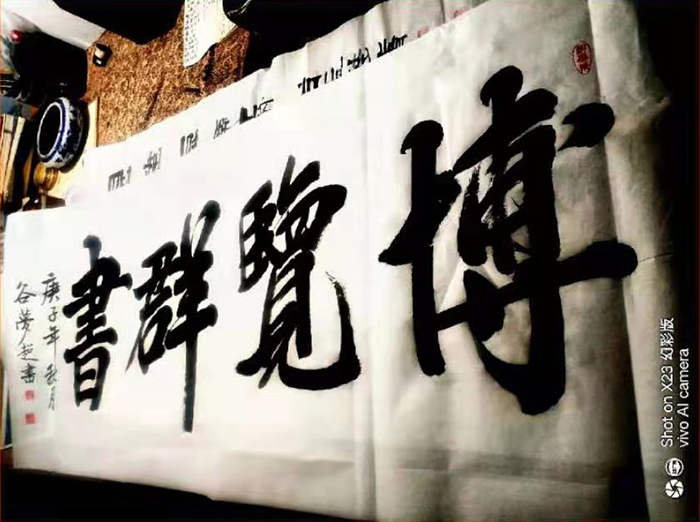 博覽群書
庚子年秋月
谷夢超書
Shot on X23 幻彩版
vivo AI camera